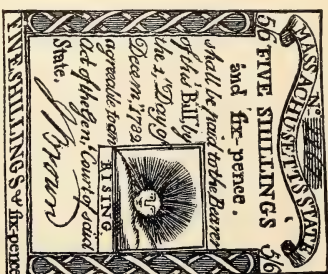 MASSACHUSETTS STATE
No.
56 FIVE SHILLINGS 56
and six-pence.
shall be paid to the Bearer
of this Bill, by
the 1, Day of
Decem. 1782
agreeable to an
Act of the Gen! Court of said
State.
RISING
FIVE SHILLINGS & six-pence